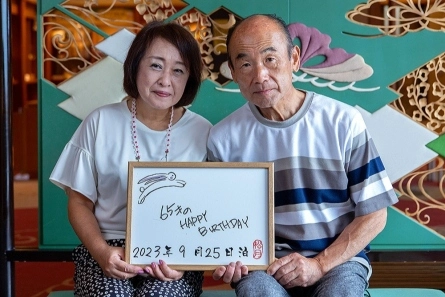 65才の
HAPPY
BIRTHDAY
2023年 9月25日 泊